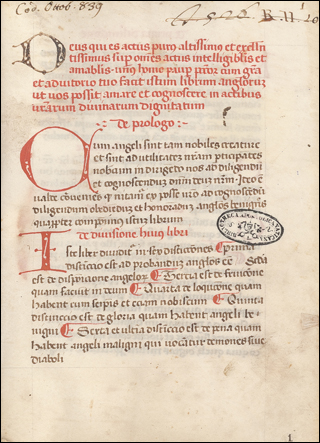 Cod. Ottob. 839
B. 11. 20
Deus qui es actus puro altissimo et exellen
tissimus sup omnes actus intelligibiles et
amabiles. nrm lyme pauper pctor cum gra
et adiutorio tuo facit istum librum anglorum
ut vos possit amare et cognoscere in actibus
vrarum divinarum dignitatum
de prologo
Cum angeli sint tam nobiles creature
et sint ad utilitatem nram pticipates
nobiscum in dirigendo nos ad diligendum
et cognoscendum dnm deum nrm. Ideo
valde ut magis ex posse nro ad cognoscendum
diligendum obediendum et honorandum anglos benignos
istum librum
De divisione huius libri
Iste liber dividit in sex distictiones. prima
distictio est ad probandum anglos eé. Secuda
est de dispositione anglorum. Tercia est de sermone
quam faciunt in deum. Quarta de loqucione quam
habent cum seipsis et eciam nobiscum. Quinta
distinctio est de gloria quam habent angeli be
nigni. Sexta et ultia distictio est de pena quam
habent angeli maligni qui vocatur demones sive
diaboli
1